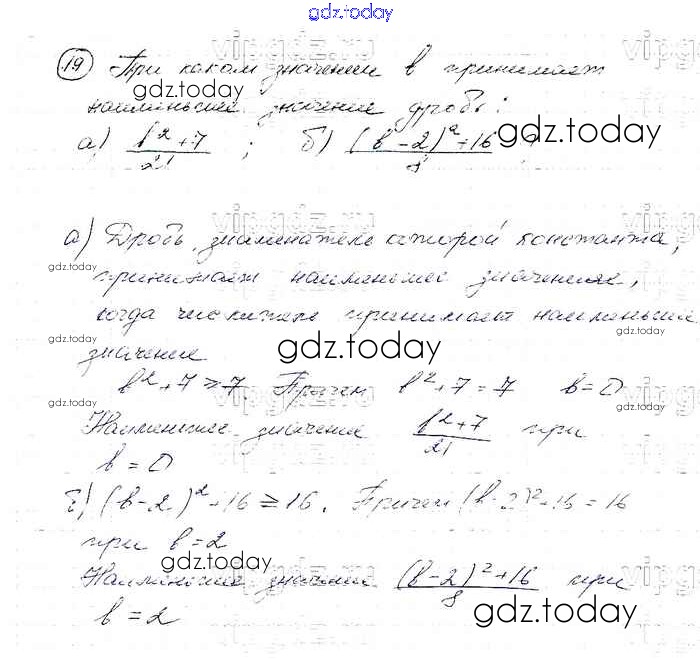 gdz.today
19 При каком значении b принимает
наименьшее значение дробь:
а) b² + 7 / 21 ; б) (b - 2)² + 16 / 8 ?
gdz.today
а) Дробь, знаменатель которой константа,
gdz.today
принимает наименьшее значение,
когда числитель принимает наименьшее
gdz.today
значение
gdz.today
b² + 7 ≥ 7. Причем b² + 7 = 7 b = 0
gdz.today gdz.today
Наименьшее значение b² + 7 / 21 при
b = 0
б) (b - 2)² + 16 ≥ 16. Причем (b - 2)² + 16 = 16
при b = 2
gdz.today
Наименьшее значение (b - 2)² + 16 / 8 при
b = 2
gdz.today